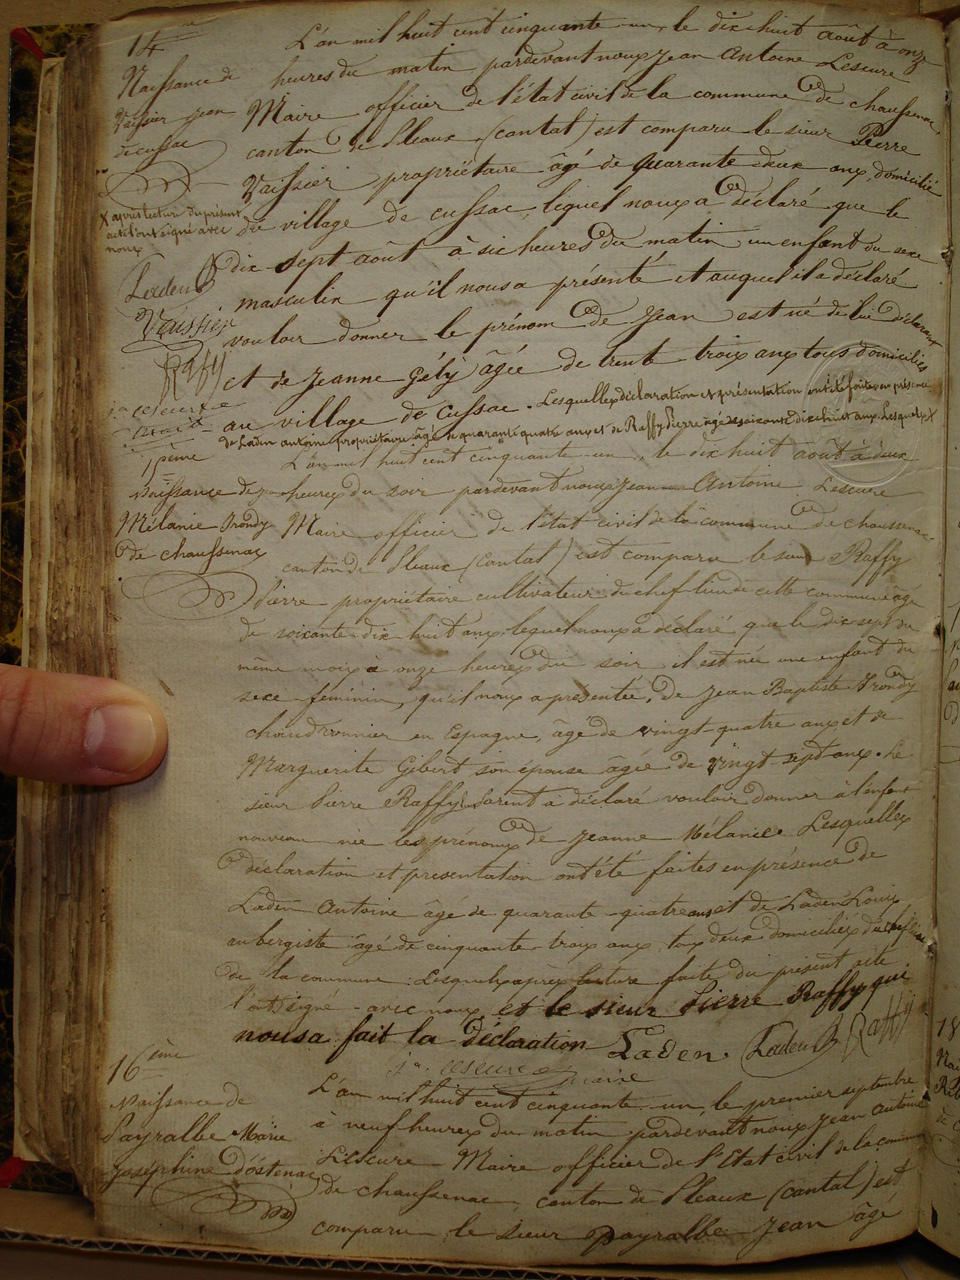 14
Naissance de
Vaissier Jean
de cussac
L'an mil huit cent cinquante-un, le dix huit août à onze
heures du matin pardevant nous Jean Antoine Lescure
Maire officier de l'état civil de la commune de chaussenac,
canton de Pleaux (cantal) est comparu le sieur Pierre
Vaissier propriétaire âgé de quarante deux ans, domicilié
du village de cussac, lequel nous a déclaré que le
dix-sept août à six heures du matin un enfant du sexe
masculin qu'il nous a présenté et auquel il a déclaré
vouloir donner le prénom de Jean est né de lui déclarant
et de Jeanne Gély âgée de trente trois ans tous domiciliés
au village de Cussac. Lesquelles déclaration et présentation ont été faites en présence
de Laden antoine propriétaire âgé de quarante quatre ans et de Raffy Pierre âgé de soixante dix huit ans. Lesquels X
X après lecture du présent
acte l'ont signé avec
nous
Laden
Vaissier
Raffy
Lescure
15ème
Naissance de
Mélanie Trondy
de chaussenac
L'an mil huit cent cinquante-un, le dix huit août à deux
heures du soir pardevant nous Jean Antoine Lescure
Maire officier de l'état civil de la commune de chaussenac
canton de Pleaux (Cantal) est comparu le sieur Raffy
Pierre propriétaire cultivateur du chef lieu de cette commune âgé
de soixante-dix huit ans lequel nous a déclaré que le dix sept du
même mois à onze heures du soir il est née une enfant du
sexe féminin, qu'il nous a présentée, de Jean Baptiste Trondy
chaudronnier en Espagne, âgé de vingt-quatre ans et de
Marguerite Gibert son épouse âgée de vingt-sept ans. Le
sieur Pierre Raffy a déclaré vouloir donner à l'enfant
nouveau née les prénoms de Jeanne Mélanie Lesquelles
déclaration et présentation ont été faites en présence de
Laden Antoine âgé de quarante-quatre ans et de Laden Louis
aubergiste âgé de cinquante-trois ans, tous deux domiciliés du chef lieu
de la commune. Lesquels après lecture faite du présent acte
l'ont signé avec nous et le sieur Pierre Raffy qui
nous a fait la déclaration Laden. Laden Raffy
Lescure maire
16ème
Naissance de
Payralbe Marie
Joséphine d'ostenac
L'an mil huit cent cinquante-un, le premier septembre
à neuf heures du matin pardevant nous Jean Antoine
Lescure Maire officier de l'Etat civil de la commune
de chaussenac, canton de Pleaux (cantal) est
comparu le sieur Payralbe Jean âgé